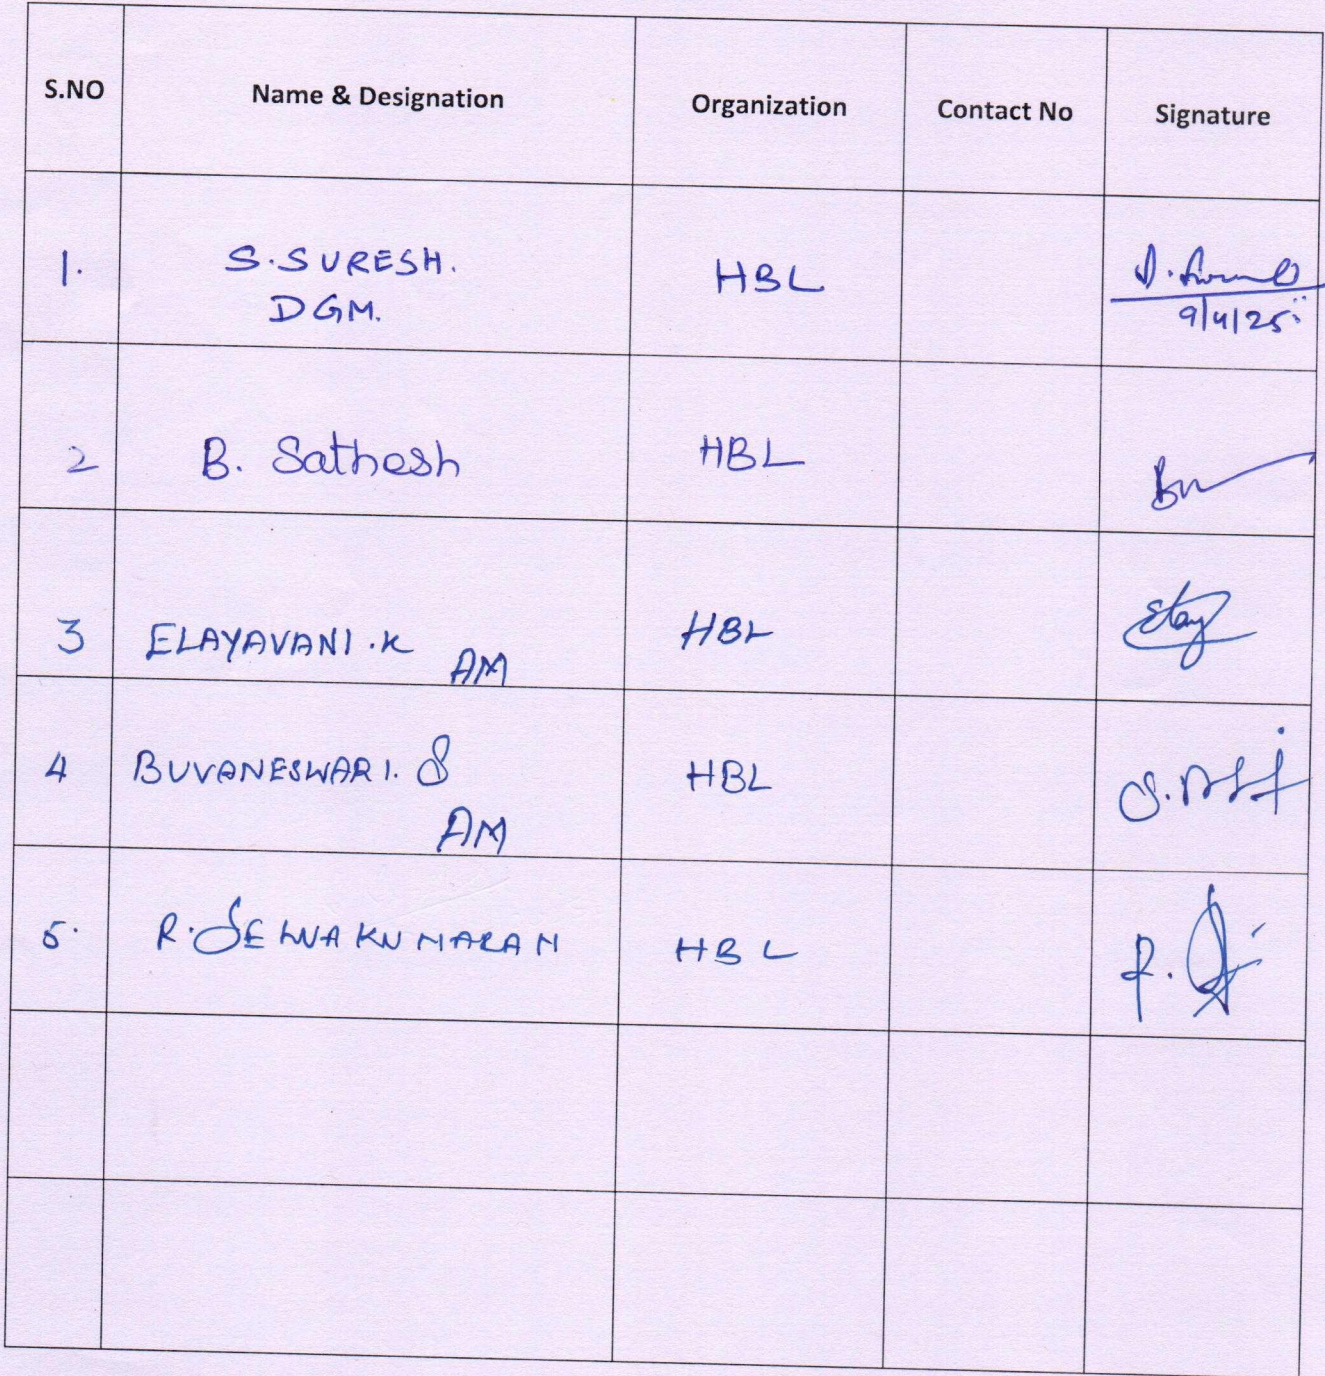 S.NO Name & Designation Organization Contact No Signature
1. S.SURESH. HBL
DGM. 9/4/25
2 B. Sathesh HBL
3 ELAYAVANI.K HBL Elay
AM
4 BUVANESWARI. S HBL
AM
5. R.SELVAKUMARAN HBL